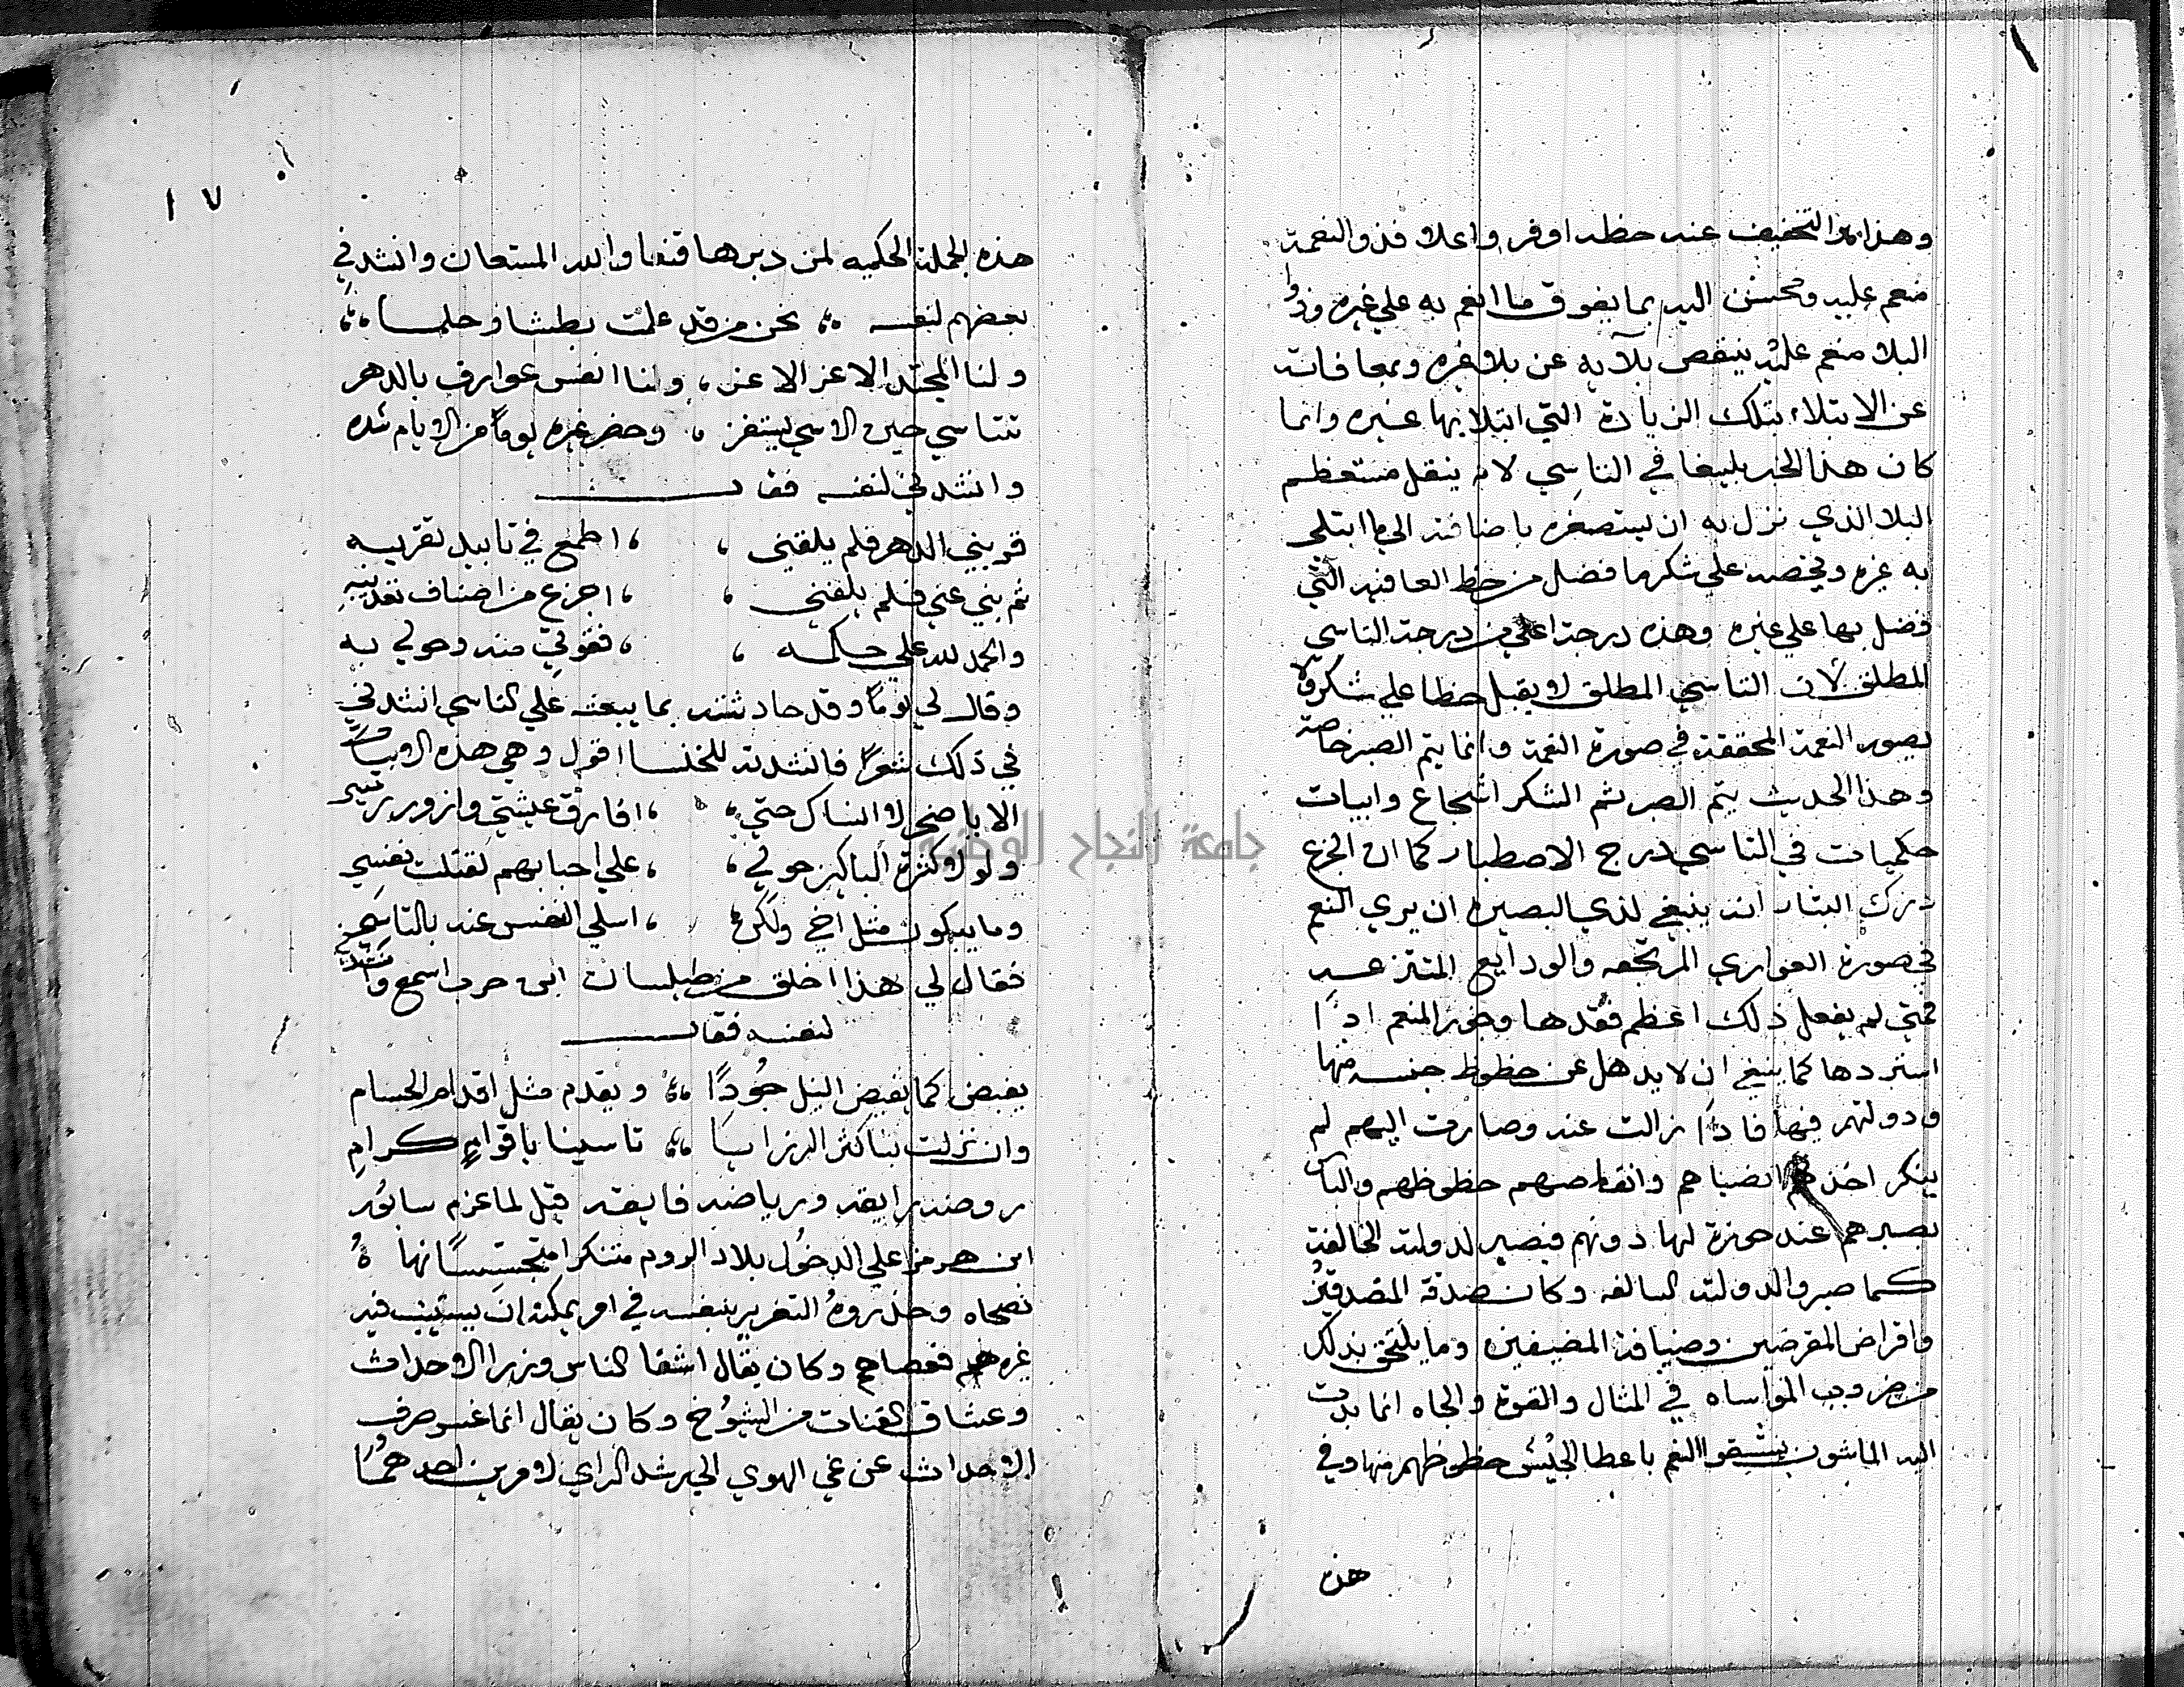 وهذا هو التخفيف عنه حظه اوفر واعلا فذو النعمة
منعم عليه ومحسن اليه بما يفوق ما انعم به علي غيره وذوا
البلا منعم عليه ينقص بلآيه عن بلا غيره وبمعافاته
عن الابتلاء بتلك الزيادة التي ابتلا بها غيره وانما
كان هذا الخبر بليغا في التاسي لانه ينقل مستعظم
البلا الذي نزل به ان يستصغره باضافته الي ما ابتلى
به غيره ويخصه علي شكر ما فضل من حظ العافيه التي
فضل بها علي غيره وهذه درجة اعلي من درجة التاسي
المطلق لان التاسي المطلق لا يقبل حظا علي شكر ولا
يصور النعمة المحققة في صورة النقمة وانما يتم الصبر خاصة
وهذا الحديث يتم الصبر ثم الشكر اسجاع وابيات
حكميات في التاسي درج الاصطبار كما ان الجزع
درك التبار انه ينبغي لذي البصيره ان يري النعم
في صورة العواري المرتجعه والودايع المنتزعه
فمتي لم يفعل ذلك اعظم فقدها وجور المنعم اذا
استردها كما ينبغي ان لا يذهل عن حظوظ جنسه منها
ودولتهم فيها فاذا زالت عنه وصارت اليهم لم
ينكر اخذهم انصباهم وانقاصهم حظوظهم والتا
بصبرهم عند حوزة لها دونهم فيصير لدولته الخالفة
كما صبروا لدولته السالفه وكان صدقة المتصدقين
واقراض المقرضين وضيافة المضيفين وما يلتحق بذلك
من ضروب المواساه في المثال والقوة والجاه انما ندبت
اليه الماشون يستبقوا النعم باعطا الجنس حظوظهم منها وفي
هذه
١٧
هذه الجملة الحكميه لمن دبرها قنعا والله المستعان وانشدني
بعضهم لنفسه نحن من قد علمت بطشا وحلما
ولنا المحتد الاعز الاعز ولنا انفس عوارف بالدهر
تتاسي حين الاسي يستفز وحضر غيره يوما من الايام شده
وانشدني لنفسه فقال
قربني الدهر فلم يلفني اطمع في تابيد تقريبه
ثم بني عني فلم يلفني اجزع من اصناف تعذيبه
والحمد لله علي حكمه فقوتي منه وحولي به
وقال لي يوما وقد حادثته بما يبعثه علي التاسي انشدني
في ذلك شعرا فانشدته للخنسا اقول وهي هذه الابيات
الا يا صخر لا انساك حتي افارق عيشتي وازور رمسي
ولولا كثرة الباكين حولي علي احبابهم لقتلت نفسي
وما يبكون مثل اخي ولكن اسلي النفس عنه بالتاسي
فقال لي هذا اخلق من طيلسان ابن حرب اسمع وانشد
لنفسه فقال
يفيض كما يفيض النيل جودا ويقدم مثل اقدام الحسام
وان نزلت بنا كثر الرزايا تاسينا باقوام كرام
روضة رايقه ورياضه فايقه قيل لما عزم سابور
ابن هرمز علي الدخول بلاد الروم متنكرا متجسسا نها ه
نصحاه وحذروه التغرير بنفسه في امر يمكنه ان يستنيب فيه
غيره فعصاهم وكان يقال اشقا الناس وزرا الاحداث
وعشاق الفتيات من الشيوخ وكان يقال انما غسر صرف
الاحداث عن غي الهوي الي رشد الراي لامرين احدهما